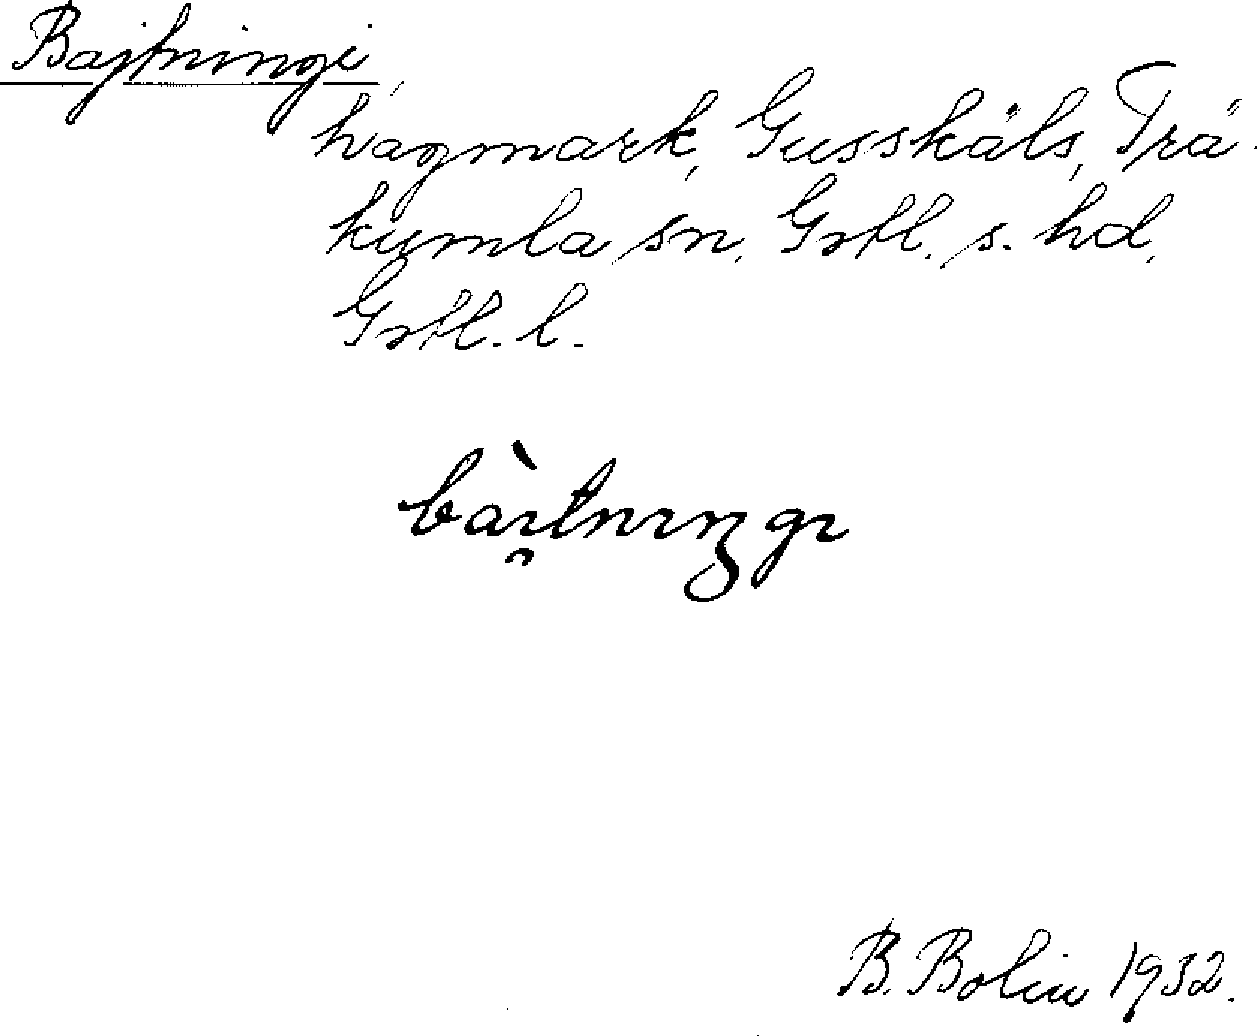 Bajtningi,
hagmark, Gusskäls, Trä-
kumla sn, Gotl. s. hd,
Gotl. l.
bàı̯tnıŋgı
B. Bolin 1932.